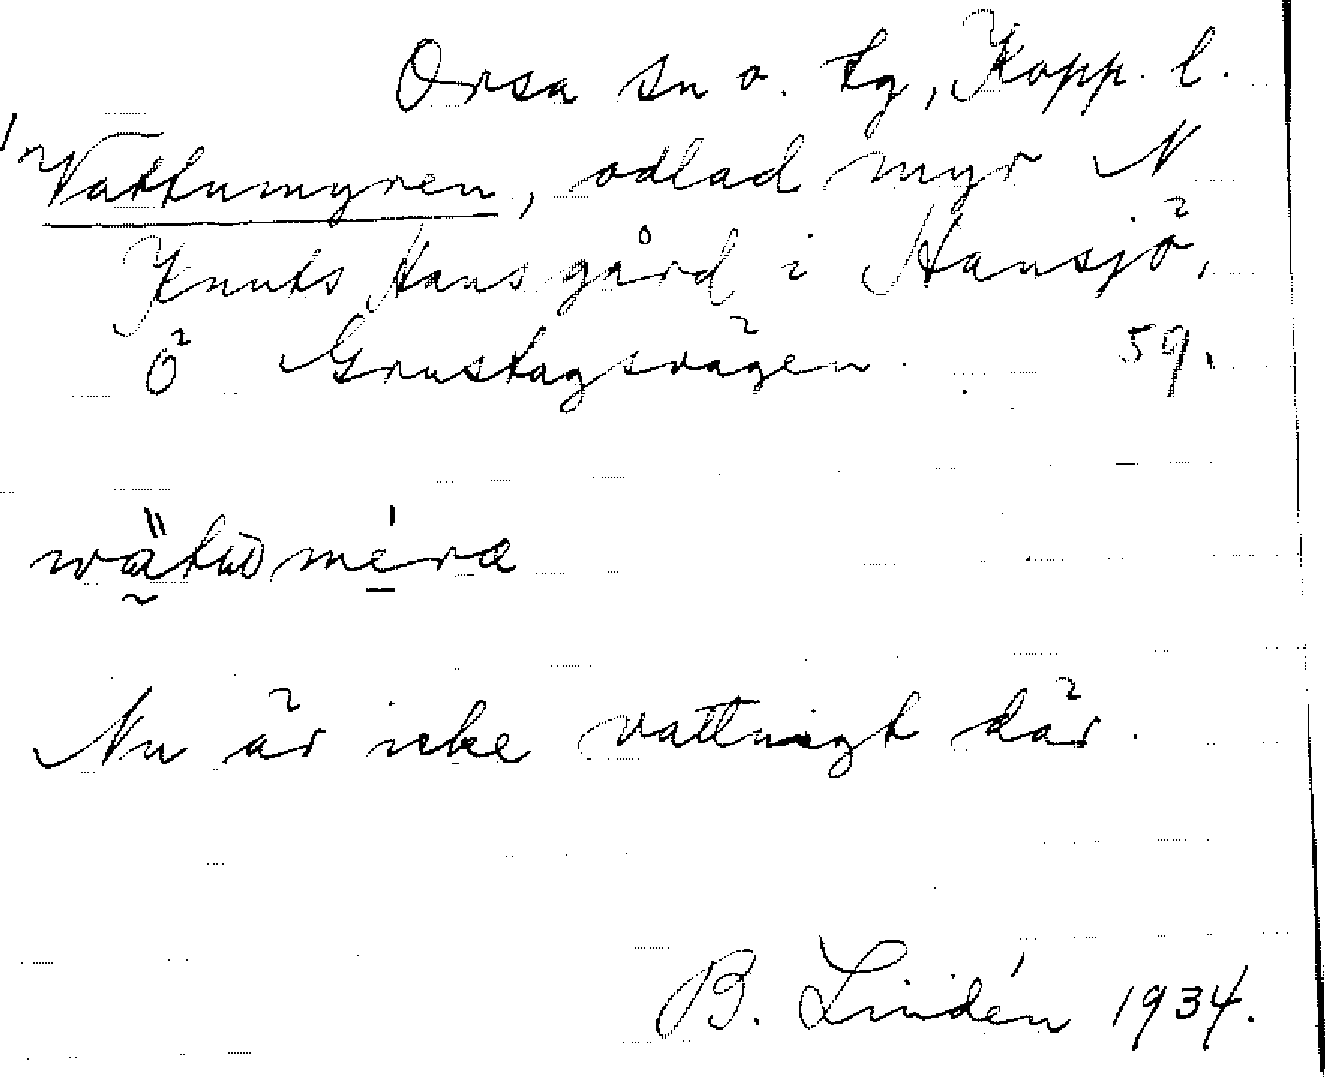 Orsa sn o. tg, Kopp. l.
Vattumyren, odlad myr N
Knuts Hans gård i Hansjö,
Ö Grustagsvägen. 59.
Nu är icke vattnigt där.
B. Lindén 1934.